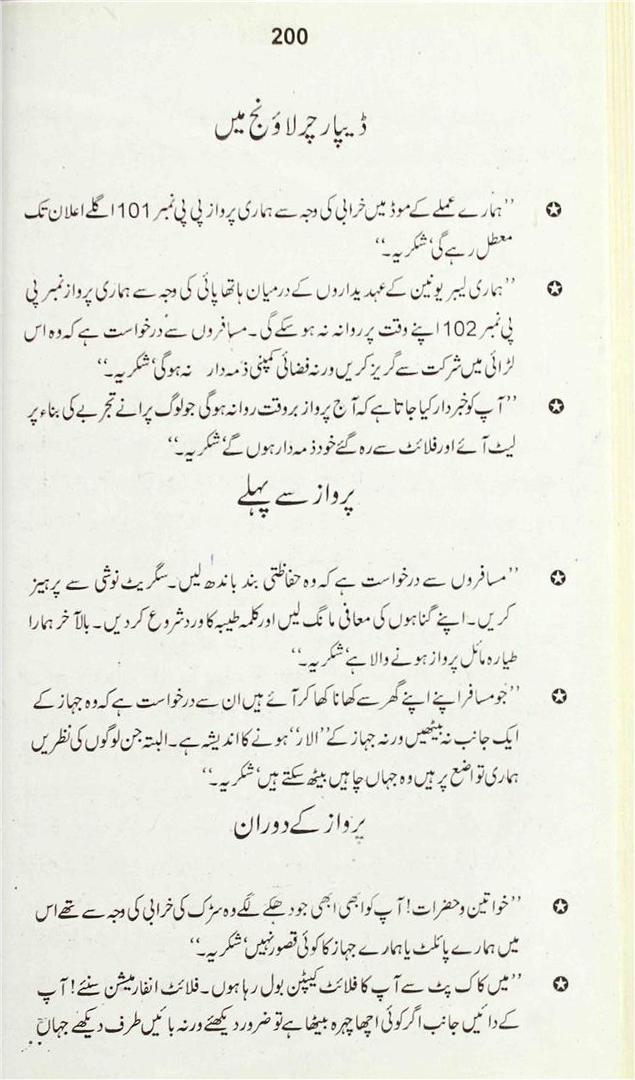 200
ڈیپارچر لاؤنج میں
✪ ’’ہمارے عملے کے موڈ میں خرابی کی وجہ سے ہماری پرواز پی پی نمبر 101 اگلے اعلان تک
معطل رہے گی‘ شکریہ۔‘‘
✪ ’’ہماری لیبر یونین کے عہدیداروں کے درمیان ہاتھا پائی کی وجہ سے ہماری پرواز نمبر پی
پی نمبر 102 اپنے وقت پر روانہ نہ ہو سکے گی۔ مسافروں سے درخواست ہے کہ وہ اس
لڑائی میں شرکت سے گریز کریں ورنہ فضائی کمپنی ذمہ دار نہ ہوگی‘ شکریہ۔‘‘
✪ ’’آپ کو خبردار کیا جاتا ہے کہ آج پرواز بروقت روانہ ہوگی جو لوگ پرانے تجربے کی بناء پر
لیٹ آئے اور فلائٹ سے رہ گئے خود ذمہ دار ہوں گے‘ شکریہ۔‘‘
پرواز سے پہلے
✪ ’’مسافروں سے درخواست ہے کہ وہ حفاظتی بند باندھ لیں۔ سگریٹ نوشی سے پرہیز
کریں۔ اپنے گناہوں کی معافی مانگ لیں اور کلمہ طیبہ کا ورد شروع کر دیں۔ بالآخر ہمارا
طیارہ مائل پرواز ہونے والا ہے‘ شکریہ۔‘‘
✪ ’’جو مسافر اپنے اپنے گھر سے کھانا کھا کر آئے ہیں ان سے درخواست ہے کہ وہ جہاز کے
ایک جانب نہ بیٹھیں ورنہ جہاز کے ’’الار‘‘ ہونے کا اندیشہ ہے۔ البتہ جن لوگوں کی نظریں
ہماری تواضع پر ہیں وہ جہاں چاہیں بیٹھ سکتے ہیں‘ شکریہ۔‘‘
پرواز کے دوران
✪ ’’خواتین و حضرات! آپ کو ابھی ابھی جو دھکے لگے وہ سڑک کی خرابی کی وجہ سے تھے اس
میں ہمارے پائلٹ یا ہمارے جہاز کا کوئی قصور نہیں‘ شکریہ۔‘‘
✪ ’’میں کاک پٹ سے آپ کا فلائٹ کیپٹن بول رہا ہوں۔ فلائٹ انفارمیشن سنئے! آپ
کے دائیں جانب اگر کوئی اچھا چہرہ بیٹھا ہے تو ضرور دیکھئے ورنہ بائیں طرف دیکھے جہاں